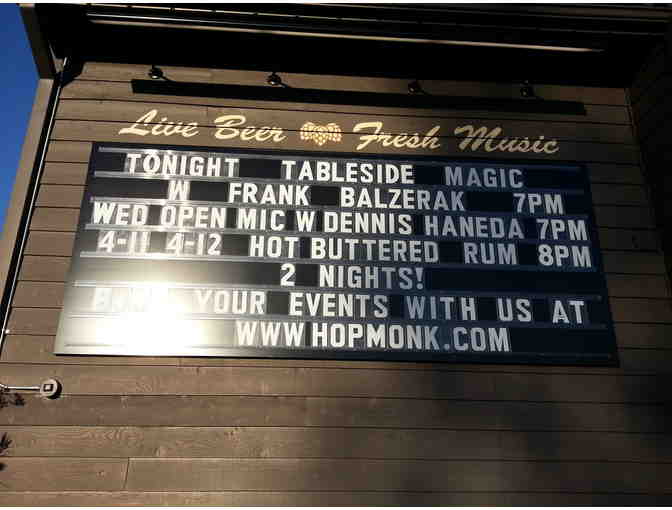 Live Beer Fresh Music
TONIGHT TABLESIDE MAGIC
W FRANK BALZERAK 7PM
WED OPEN MIC W DENNIS HANEDA 7PM
4-11 4-12 HOT BUTTERED RUM 8PM
2 NIGHTS!
YOUR EVENTS WITH US AT
WWW.HOPMONK.COM